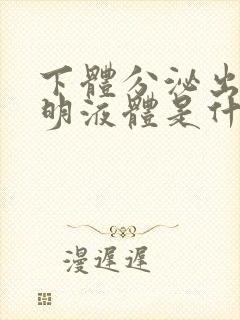 下體分泌出
明液體是什
漫遲遲